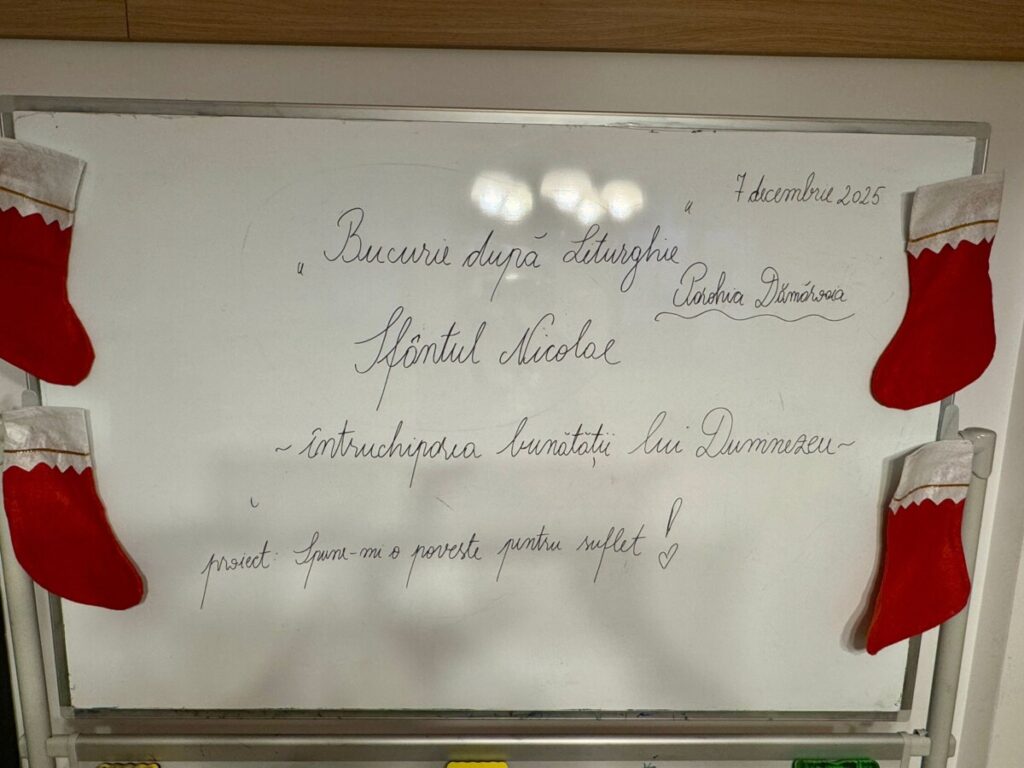 7 decembrie 2025
"Bucurie după Liturghie"
Parohia Dămăroaia
Sfântul Nicolae
~ întruchiparea bunătății lui Dumnezeu ~
proiect: Spune-mi o poveste pentru suflet! ♡